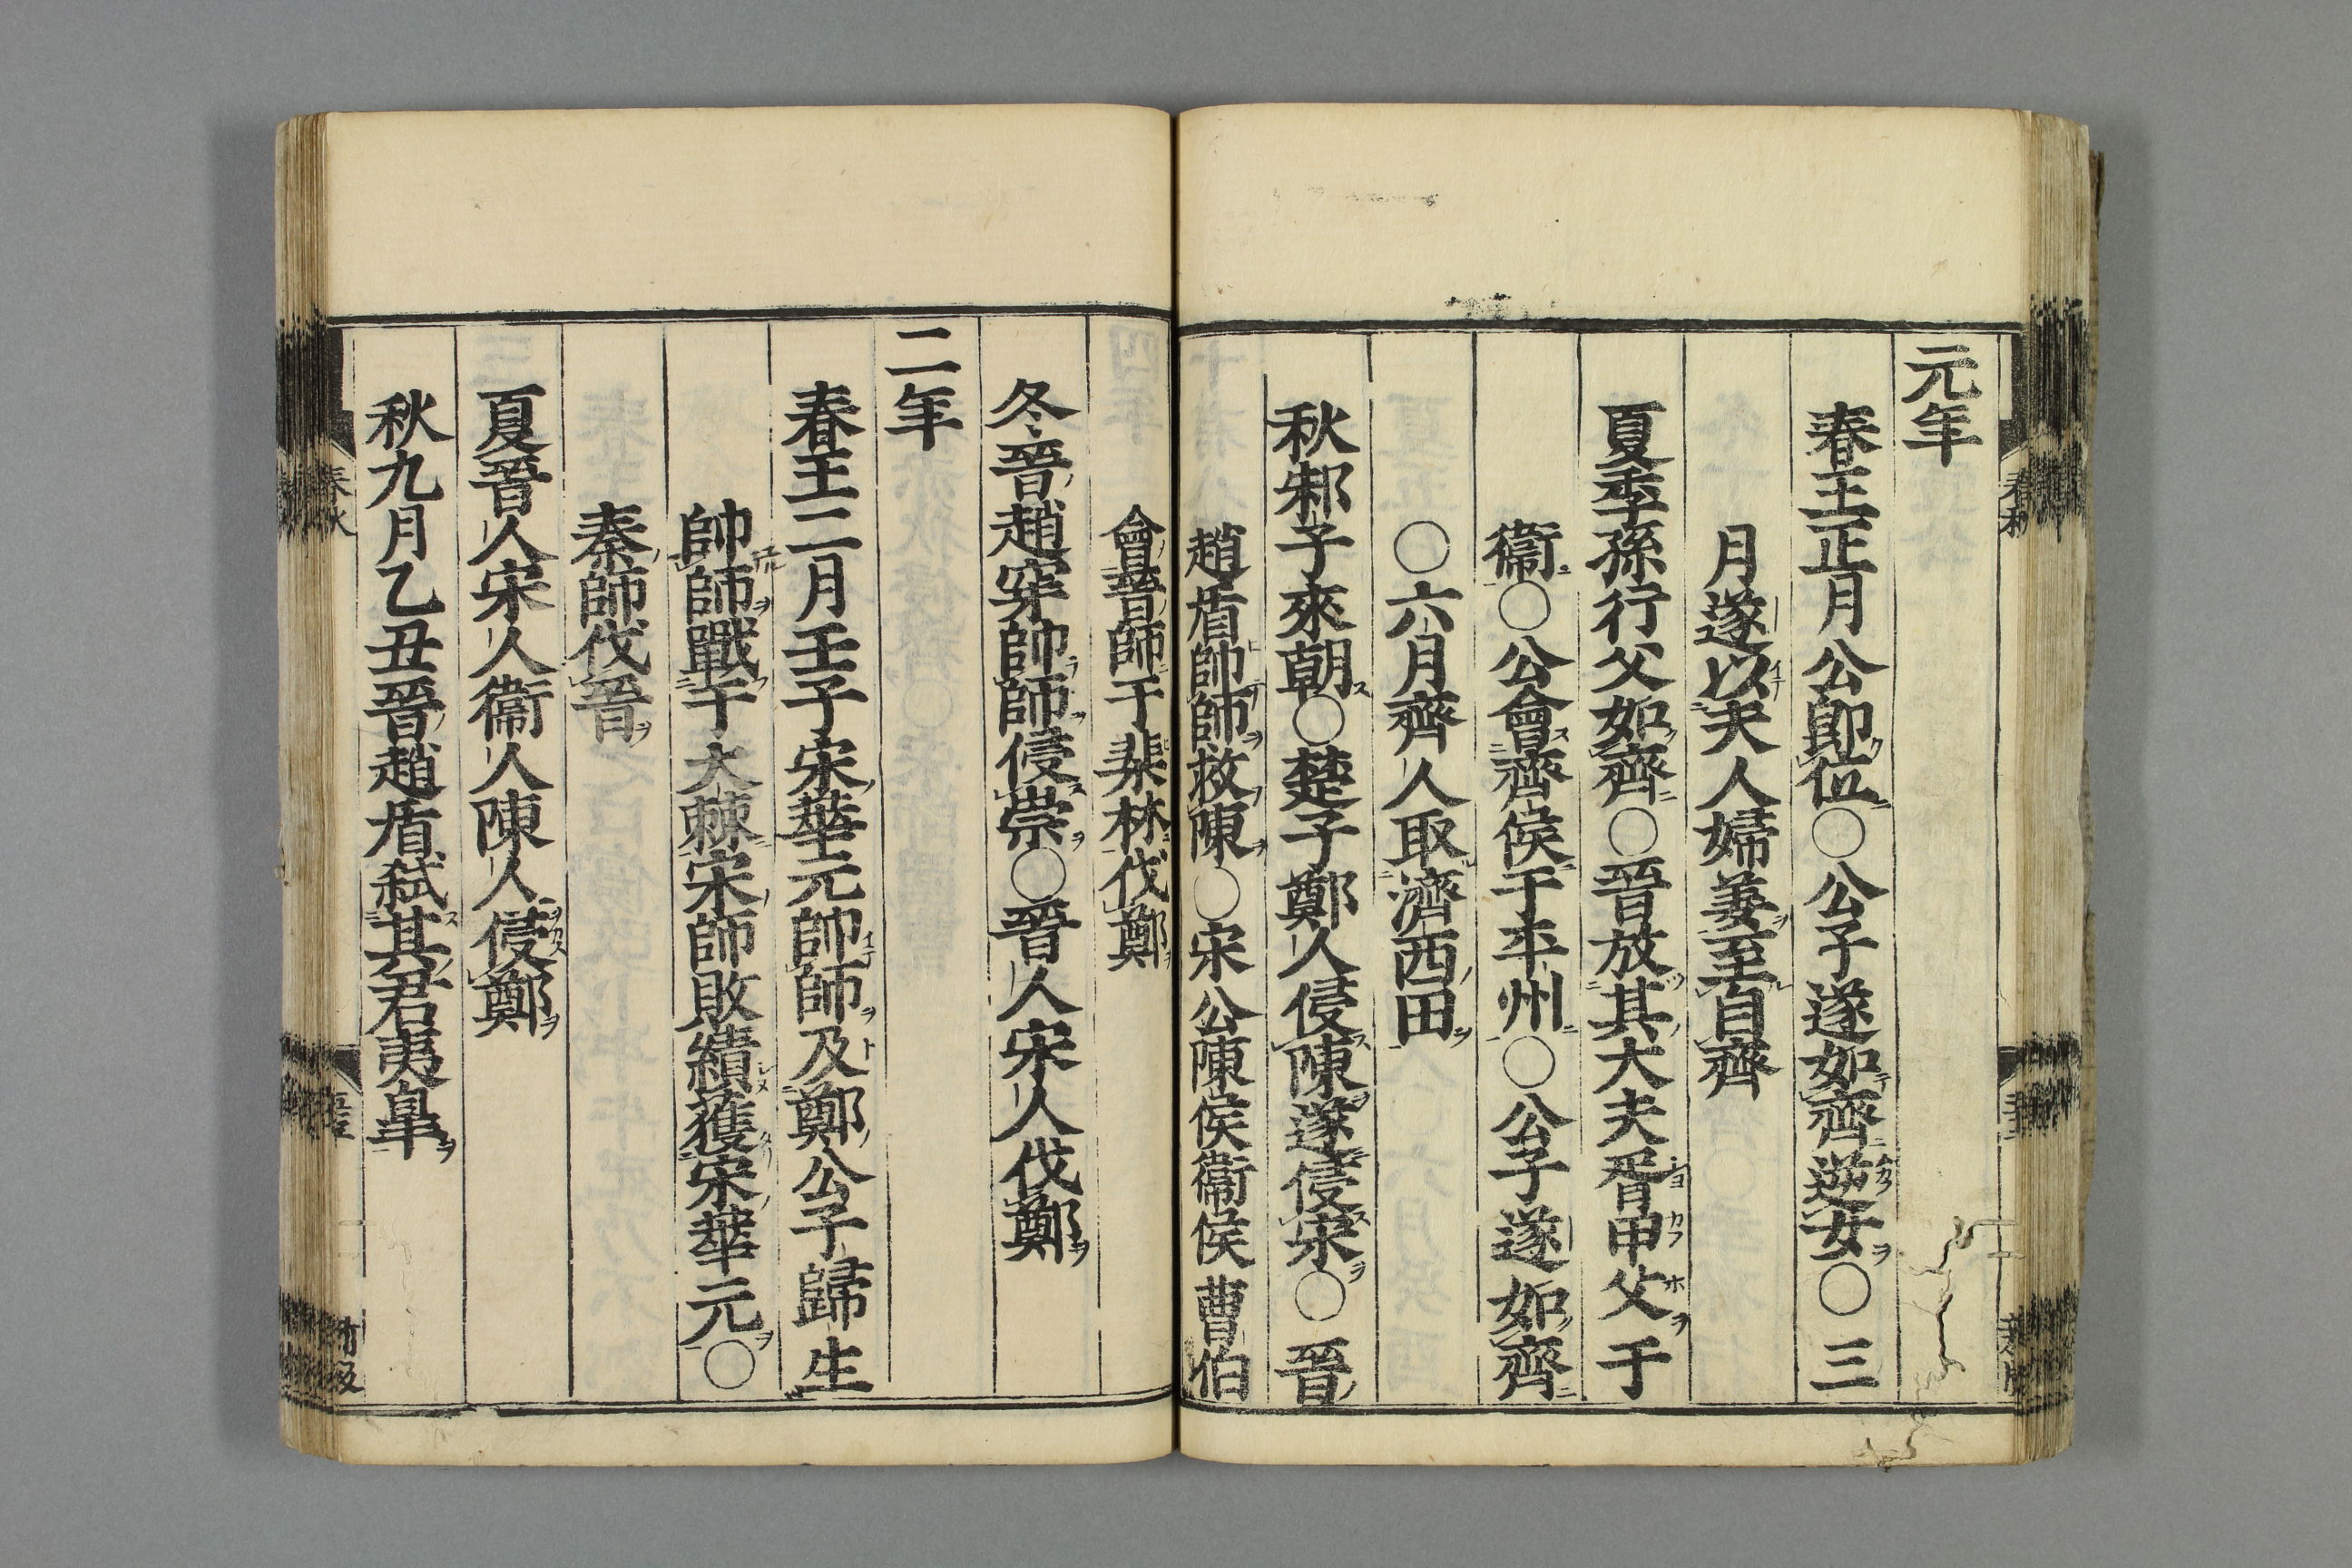 元年
春王正月公即位〇公子遂如齊逆女〇三
月遂以夫人婦姜至自齊
夏季孫行父如齊〇晉放其大夫胥甲父于
衞〇公會齊侯于平州〇公子遂如齊
〇六月齊人取濟西田
秋邾子來朝〇楚子鄭人侵陳遂侵宋〇晉
趙盾帥師救陳〇宋公陳侯衞侯曹伯
會晉師于棐林伐鄭
冬晉趙穿帥師侵崇〇晉人宋人伐鄭
二年
春王二月壬子宋華元帥師及鄭公子歸生
帥師戰于大棘宋師敗績獲宋華元〇
秦師伐晉
夏晉人宋人衞人陳人侵鄭
秋九月乙丑晉趙盾弑其君夷皐